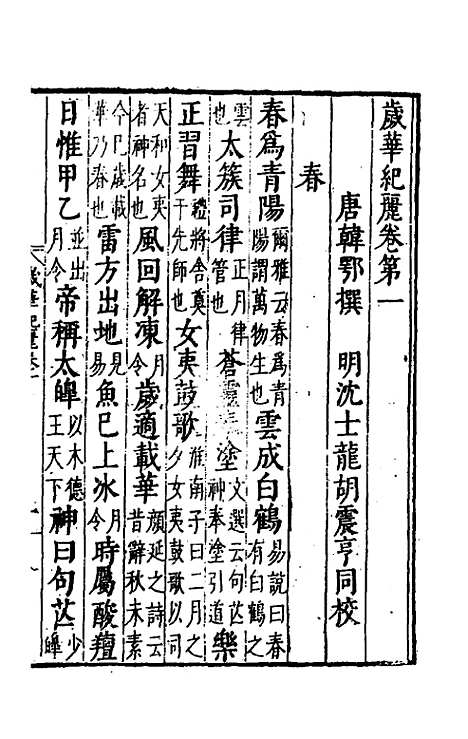 歲華紀麗卷第一
唐韓鄂撰　明沈士龍胡震亨同校
春
春爲青陽爾雅云春爲青陽謂萬物生也雲成白鶴易說曰春有白鶴之
雲也太簇司律正月律管也蒼靈奉塗文選云句芒神奉塗引道樂
正習舞禮將舍奠于先師也女夷鼓歌淮南子曰二月之夕女夷鼓歌以司
天和女夷者神名也風回解凍月令歲適載華顔延之詩云昔辭秋未素
今巳歲載華乃春也雷方出地見易魚巳上冰月令時屬酸羶
日惟甲乙並出月令帝稱太皥以木德王天下神曰句芒少皥
歲華紀麗卷一